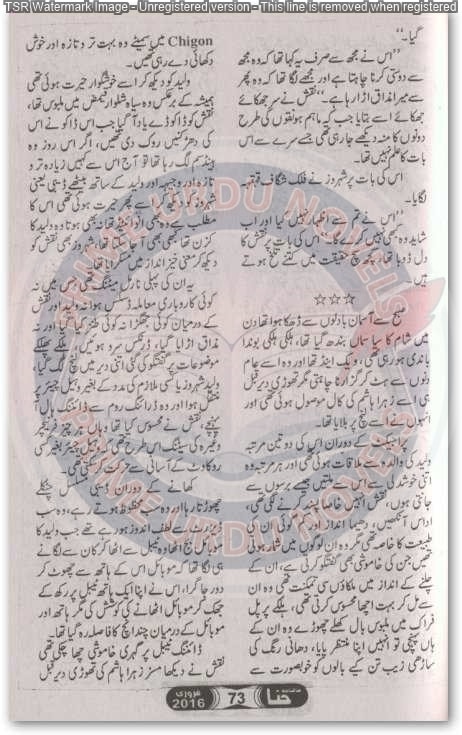 TSR Watermark Image - Unregistered version - This line is removed when registered
گیا۔"
"اس نے مجھ سے صرف یہ کہا تھا کہ وہ مجھ
سے دوستی کرنا چاہتا ہے اور مجھے لگا تھا کہ وہ پھر
سے میرا مذاق اڑا رہا ہے۔" نقش نے سر جھکائے
جھکائے اسے بتایا جب کہ ماہم ہونقوں کی طرح
دونوں کا منہ دیکھے جا رہی تھی جسے سرے سے اس
بات کا علم نہیں تھا۔
اس کی بات پر شہروز نے فلک شگاف قہقہہ
لگایا۔
"اس نے تم سے اظہار نہیں کیا اور اب
شاید وہ کبھی نہیں کرے گا۔" اس کی بات پر نقش کا
دل ڈوبا تھا، کچھ سچ حقیقت میں کتنے تلخ ہوتے
ہیں۔
☆☆☆
صبح سے آسمان بادلوں سے ڈھکا ہوا تھا دن
میں شام کا سا سماں بندھ گیا تھا، ہلکی ہلکی بوندا
باندی ہو رہی تھی، ویک اینڈ تھا اور وہ اسے عام
دنوں سے ہٹ کر گزارنا چاہتی مگر تھوڑی دیر قبل
ہی اسے زہرا ہاشم کی کال موصول ہوئی تھی اور
انہوں نے اسے لنچ پر بلایا تھا۔
پراجیکٹ کے دوران اس کی دو تین مرتبہ
ولید کی والدہ سے ملاقات ہوئی تھی اور ہر مرتبہ وہ
اتنی خوش دلی سے اس سے ملتیں جیسے برسوں سے
جانتی ہوں، نقش انہیں خاصا پسند کرنے لگی تھی،
اداس آنکھیں، دھیما انداز اور کم گوئی ان کی
طبیعت کا خاصہ تھی مگر وہ ان لوگوں میں شمار ہوتی
تھیں جن کی خاموشی بھی گفتگو کرتی ہے، ان کے
چلنے کے انداز میں ملکاؤں سی تمکنت تھی وہ ان
سے مل کر بہت اچھا محسوس کرتی تھی، ہلکے پرپل
فراک میں ملبوس بال کھلے چھوڑے وہ ان کے
ہاں پہنچی تو انہیں اپنا منتظر پایا، دھانی رنگ کی
ساڑھی زیب تن کیے بالوں کو خوبصورت سے
Chigon میں سمیٹے وہ بہت تر و تازہ اور خوش
دکھائی دے رہی تھیں۔
ولید کو دیکھ کر اسے خوشگوار حیرت ہوئی تھی
ہمیشہ کے برعکس وہ سیاہ شلوار قمیض میں ملبوس تھا،
نقش کو ڈاکو ڈے یاد آ گیا جب اس ڈاکو نے اس
کی دھڑکنیں روک دی تھیں، اگر اس روز وہ
ہینڈسم لگ رہا تھا تو آج اس سے کہیں زیادہ تر و
تازہ اور وجیہہ اور ولید کے ساتھ بیٹھے
شہروز کو دیکھ کر اسے پھر حیرت ہوئی تھی اس کا
مطلب ہے وہ بھی انوائیٹڈ تھا، نہ بھی ہوتا وہ ولید کا
کزن تھا کبھی بھی آ سکتا تھا، شہروز بھی نقش کو
دیکھ کر معنی خیز انداز میں مسکرایا تھا۔
یہ ان کی پہلی نارمل میٹنگ تھی جس میں نہ
کوئی کاروباری معاملہ ڈسکس ہوا نہ ولید اور نقش
کے درمیان کوئی جھگڑا نہ کوئی طنز کیا گیا اور نہ
مذاق اڑایا گیا، ڈرنکس سرو ہوئیں، ہلکے پھلکے
موضوعات پر گفتگو کی گئی اتنی دیر میں لنچ لگ گیا،
ولید شہروز یا کسی ملازم کی مدد کے بغیر وہیل چیئر پر
منتقل ہوا اور وہ ڈرائنگ روم سے ڈائننگ ہال آ
پہنچے، نقش نے محسوس کیا تھا وہاں ہر چیز فرنیچر
وغیرہ کی سیٹنگ اس طرح تھی کہ وہیل چیئر بغیر کسی
رکاوٹ کے آسانی سے حرکت کر سکتی تھی۔
کھانے کے دوران شہروز مسلسل چٹکلے
چھوڑتا رہا اور وہ سب محظوظ ہوتے رہے، وہ سب
ڈیزرٹ سے لطف اندوز ہو رہے تھے جب ولید کا
موبائل بج اٹھا وہ ٹیبل سے اٹھا کر کان سے لگانے
ہی لگا تھا کہ موبائل اس کے ہاتھ سے چھوٹ کر
دور جا گرا، اس نے اپنا ایک ہاتھ ٹیبل پر رکھ کے
جھک کر موبائل اٹھانے کی کوشش کی مگر ہاتھ اور
موبائل کے درمیان چند انچ کا فاصلہ رہ گیا تھا۔
ڈائننگ ٹیبل پر گہری خاموشی چھا چکی تھی
نقش نے دیکھا مسز زہرا ہاشم کی تھوڑی دیر قبل
ماہنامہ حنا 73 فروری 2016
PRIME URDU NOVELS